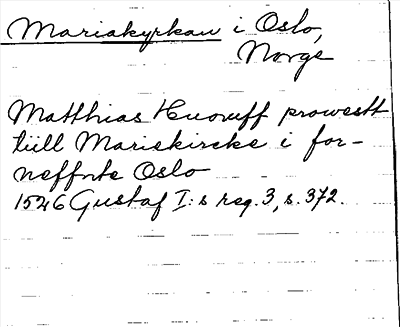 Mariakyrkan i Oslo,
Norge
Matthias Huoruff prowestt
tüll Mariekircke i for-
neffnte Oslo
1526 Gustaf I:s reg. 3, s. 372.